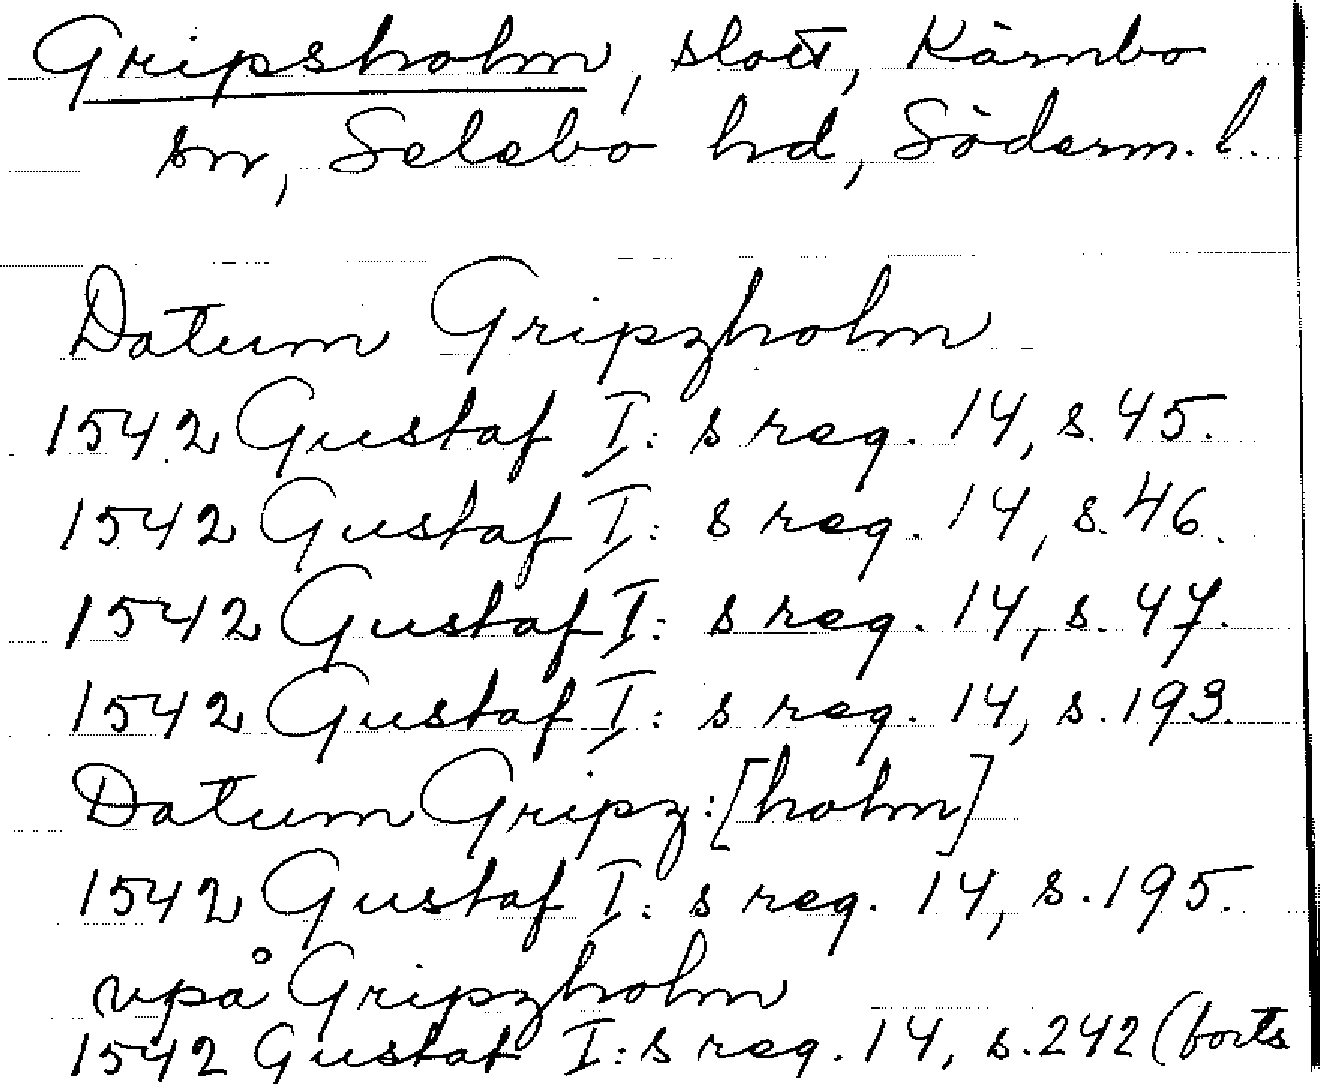 Gripsholm, slott, Kärnbo
sn, Selebo hd, Söderm. l.
Datum Gripzholm
1542 Gustaf I: s reg. 14, s. 45.
1542 Gustaf I: s reg. 14, s. 46.
1542 Gustaf I: s reg. 14, s. 47.
1542 Gustaf I: s reg. 14, s. 193.
Datum Gripz:[holm]
1542 Gustaf I: s reg. 14, s. 195.
vpå Gripzholm
1542 Gustaf I: s reg. 14, s. 242 (forts